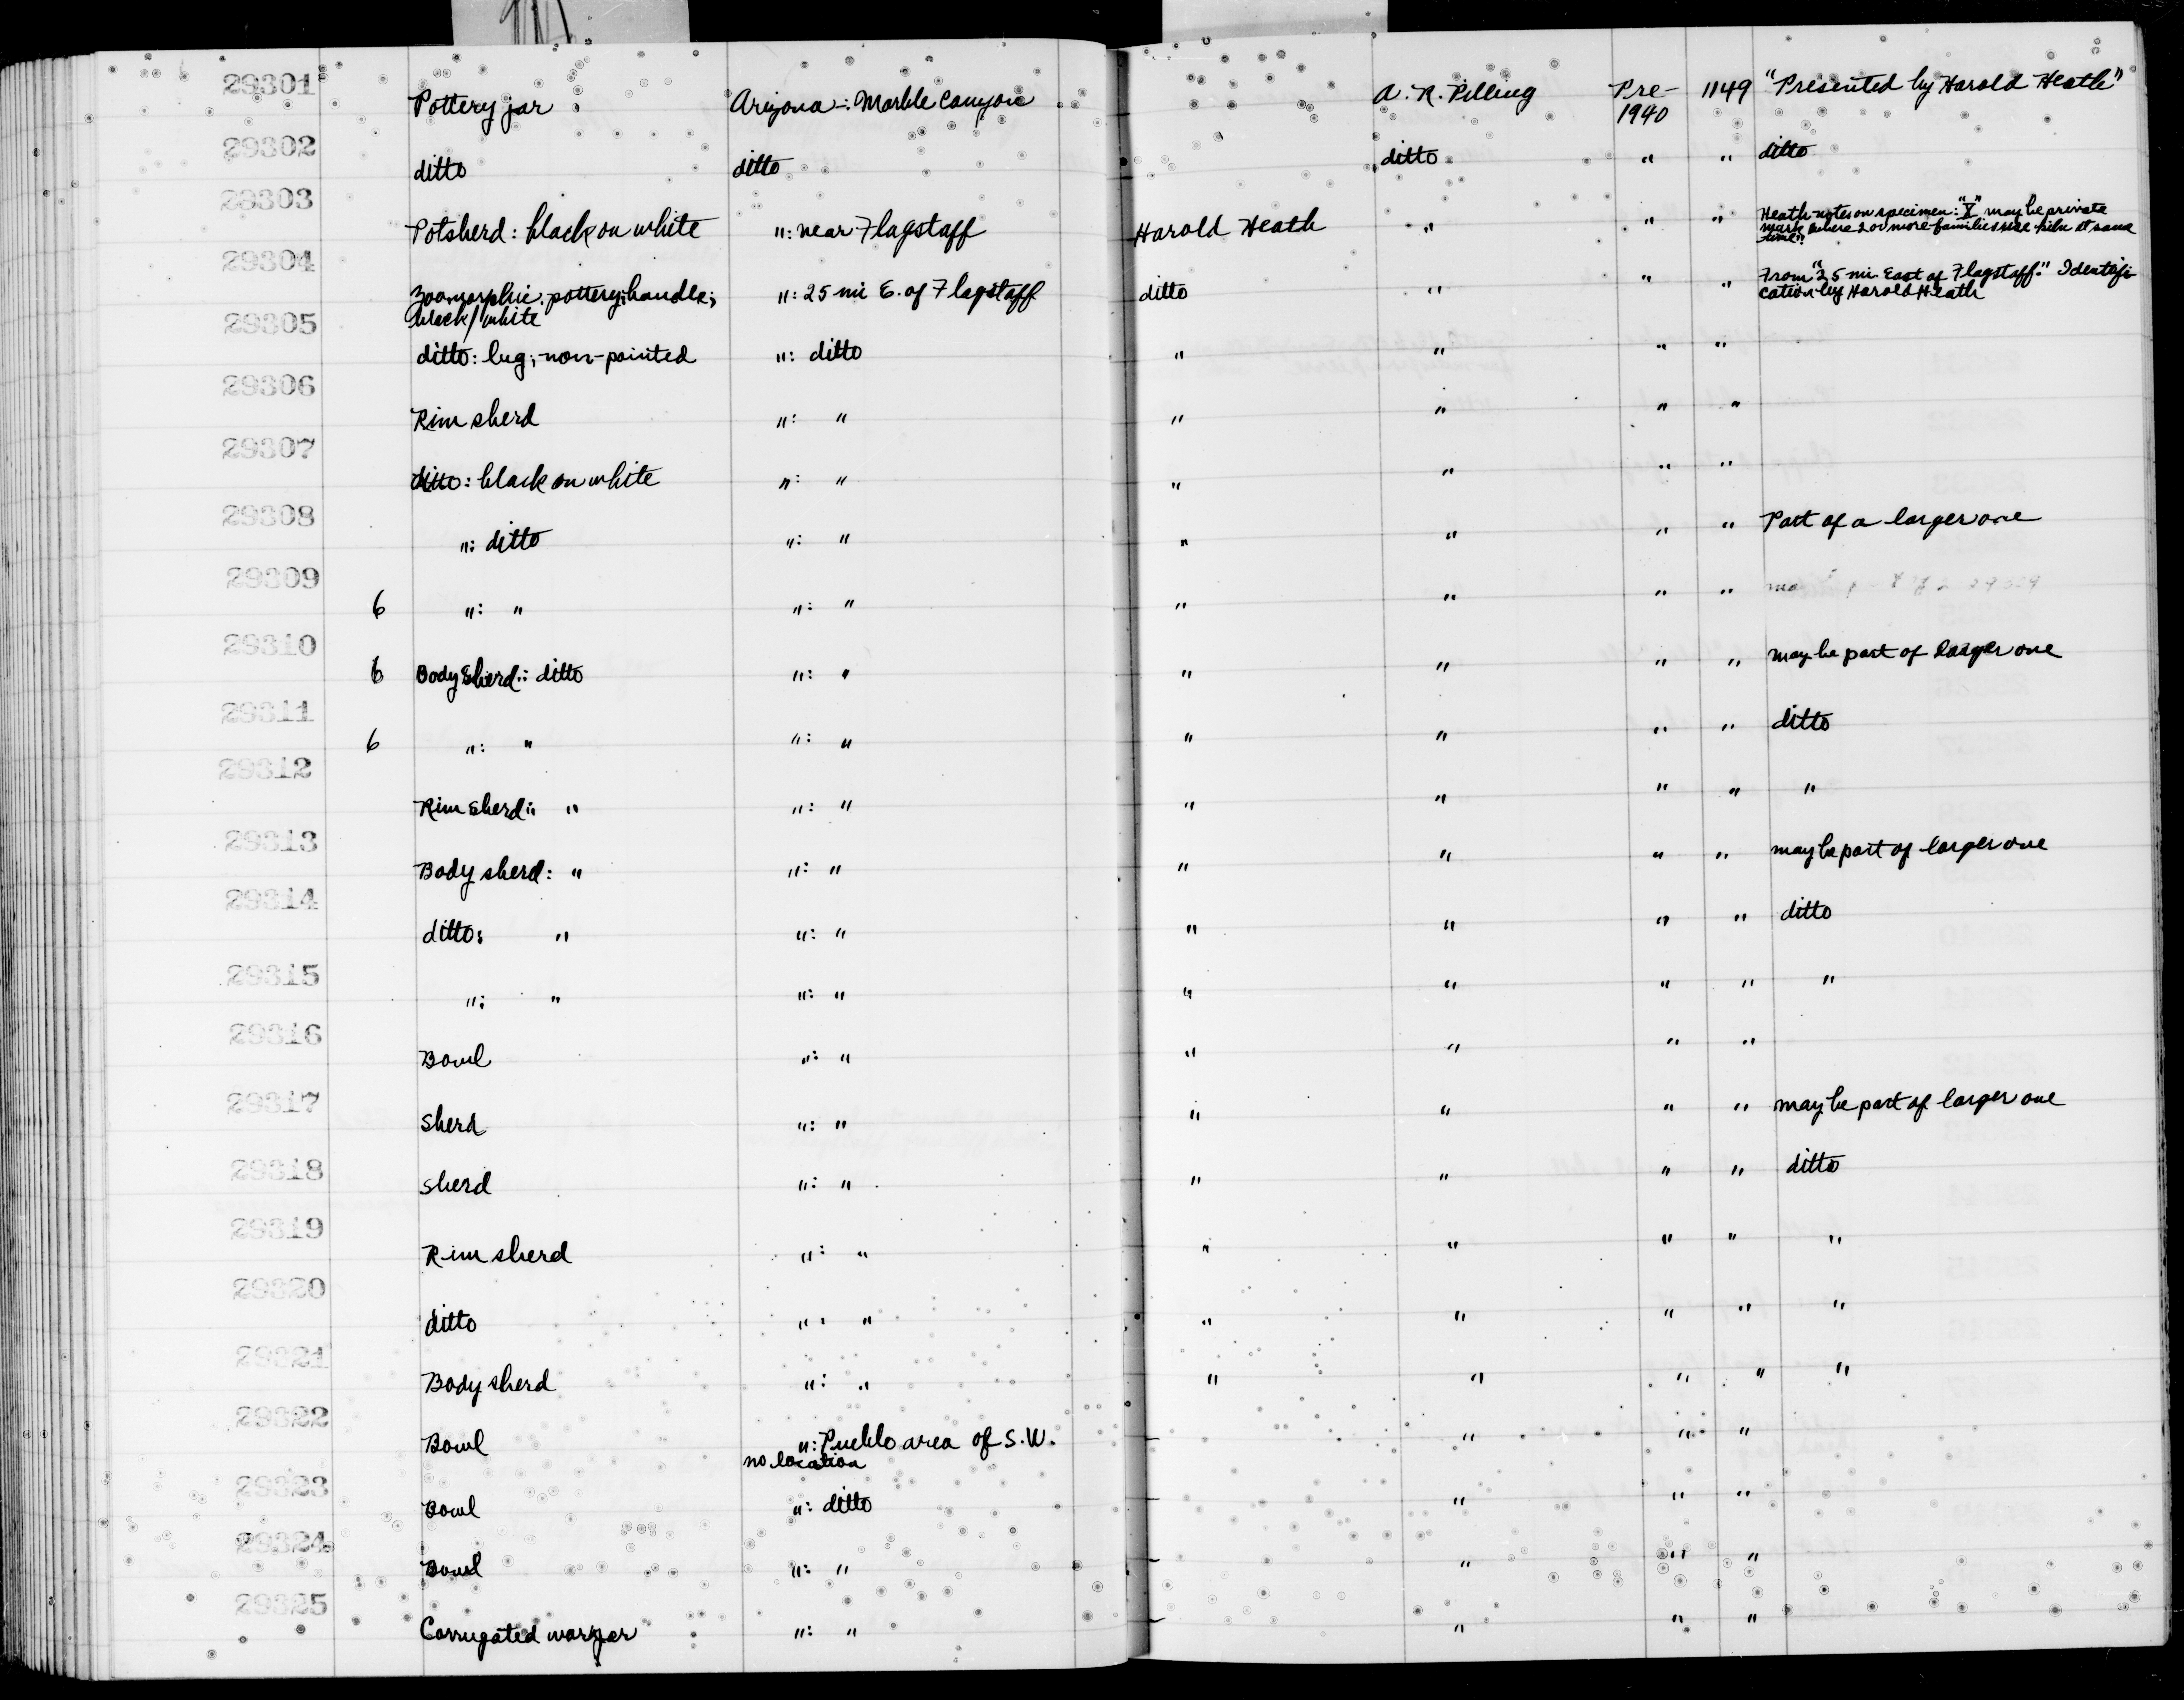 29301 Pottery jar Arizona: Marble Canyon A. R. Pilling Pre-1940 1149 "Presented by Harold Heath"
29302 ditto ditto ditto " " ditto
29303 Potsherd: black on white ": near Flagstaff Harold Heath " " " Heath notes on specimen: "X" may be private
mark where 2 or more families use kiln at same
time"
29304 Zoomorphic pottery handle; ": 25 mi E. of Flagstaff ditto " " " From "25 mi East of Flagstaff." Identifi-
black/white cation by Harold Heath
29305 ditto: lug; non-painted ": ditto " " " "
29306 Rim sherd ": " " " " "
29307 ditto: black on white ": " " " " "
29308 ": ditto ": " " " " " Part of a larger one
29309 6 ": " ": " " " " "
29310 6 Body Sherd: ditto ": " " " " " may be part of larger one
29311 6 ": " ": " " " " " ditto
29312 Rim Sherd: " ": " " " " " "
29313 Body sherd: " ": " " " " " may be part of larger one
29314 ditto: " ": " " " " " ditto
29315 ": " ": " " " " " "
29316 Bowl ": " " " " "
29317 Sherd ": " " " " " may be part of larger one
29318 Sherd ": " " " " " ditto
29319 Rim sherd ": " " " " " "
29320 ditto ": " " " " " "
29321 Body sherd ": " " " " " "
29322 Bowl ": Pueblo area of S.W. - " " "
no location
29323 Bowl ": ditto - " " "
29324 Bowl ": " - " " "
29325 Corrugated ware jar ": " - " " "